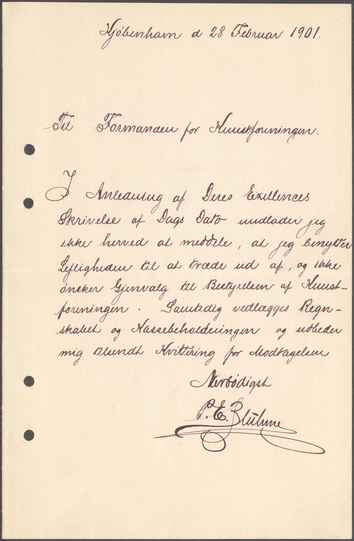 Kjöbenhavn d 28 Februar 1901.
Til Formanden for Kunstforeningen.
I Anledning af Deres Exellences
Skrivelse af Dags Dato undlader jeg
ikke herved at meddele, at jeg benytter
Lejligheden til at træde ud af, og ikke
ønsker Gjenvalg til Bestyrelsen af Kunst-
foreningen. Samtidig vedlægges Regn-
skabet og Kassebeholdningen og udbeder
mig Kvittering for Modtagelsen
Ærbødigst
P. E. Bluhme